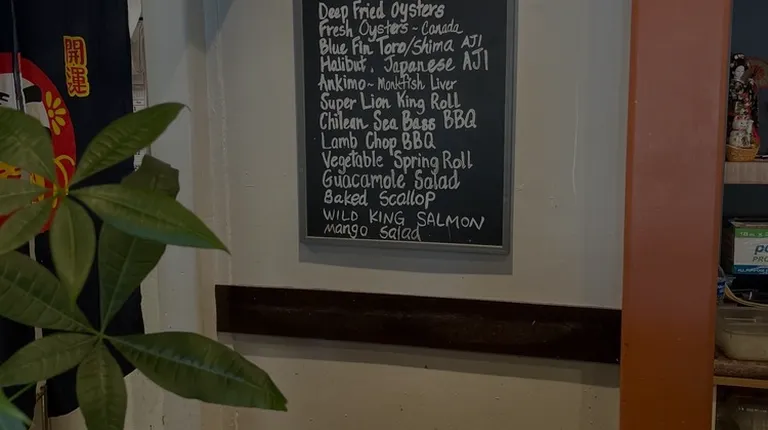 開運
Deep Fried Oysters
Fresh Oysters ~ Canada
Blue Fin Toro/Shima AJI
Halibut, Japanese AJI
Ankimo ~ Monkfish Liver
Super Lion King Roll
Chilean Sea Bass BBQ
Lamb Chop BBQ
Vegetable Spring Roll
Guacamole Salad
Baked Scallop
WILD KING SALMON
mango salad